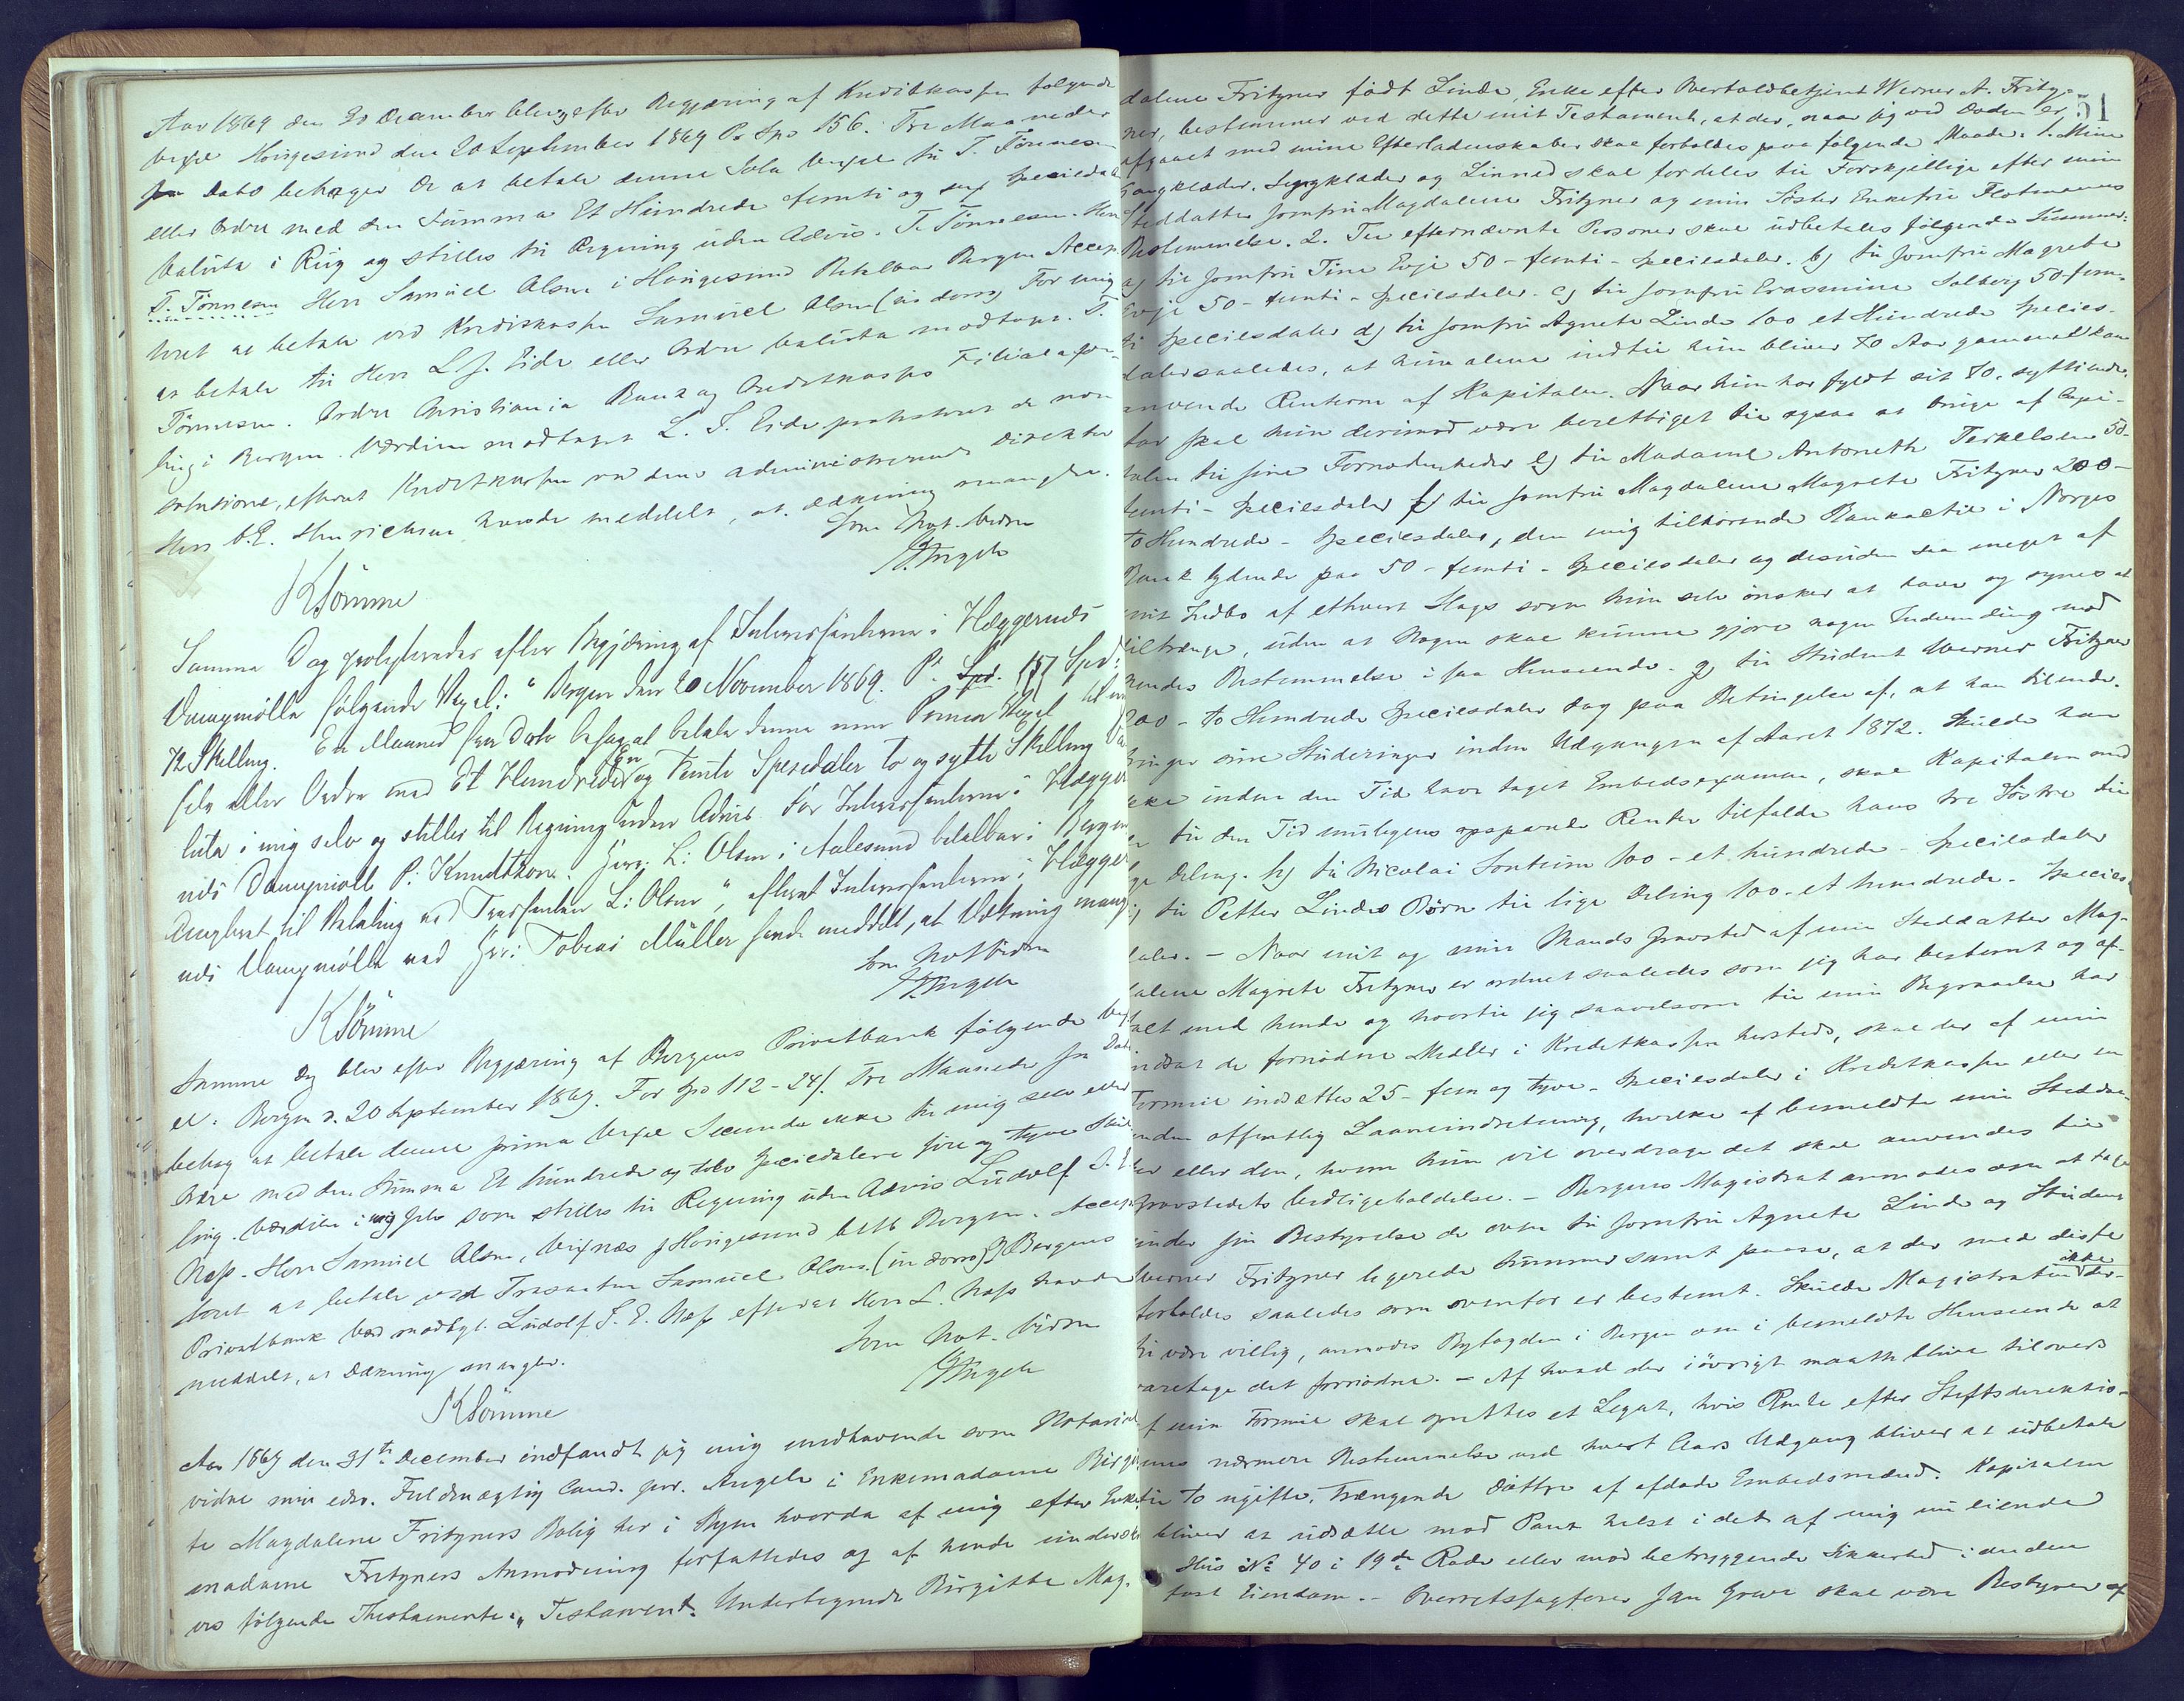 Aar 1869 den 30 December blev efter Begjæring af Kreditkassen følgende
Vexel Hougesund den 20 September 1869 Pr Spd 156. Tre Maaneder
fra Dato behager De at betale denne Sola Vexel til T. Tönnesen
eller Ordre med den Summa Et Hundrede femti og sex Speciedaler
Valuta i Riig og stilles til Regning uden Advis. T. Tönnesen. Herr
T. Tönnesen Herr Samuel Olsen i Hougesund Betalbar Bergen Accep-
teret at betale ved Kreditkassen Samuel Olsen (in dorso) For mig
at betale til Herr L. J. Eide eller Ordre valuta modtagen. T.
Tönnesen. Ordre Christiania Bank og Creditkasses Filialafde-
ling i Bergen. Værdien modtaget L. J. Eide protesteret de non
solutione, efterat Kreditkassen ved dens administrerende Direktör
Herr C. E. Hinrichsen havde meddelt, at Dækning mangler.
Som Not. Vidne
Angell
K Sömme
Samme Dag protesteredes efter Begjæring af Interessenterne i Hæggernæs
Dampmölle følgende Vexel: "Bergen den 20 November 1869. Pr. Spd. 157 Spd:
72 Skilling. En Maaned fra Dato behag at betale denne min Prima Vexel til mig
selv eller Ordre med Et Hundrede Syv og Femti Spesidaler to og sytti Skilling Va-
luta i mig selv og stilles til Regning uden Advis. For Interessenterne i Hægger-
næs Dampmölle P. Knudtzon. Herr: L: Olsen i Aalesund betalbar i Bergen
Accepteret til Betaling ved Trassenten L: Olsen", efterat Interessenterne i Hægger-
næs Dampmölle ved Herr: Tobias Müller havde meddelt, at Dækning mangler
Som Not Vidne
Angell
K Sömme
Samme Dag blev efter Begjæring af Bergens Privatbank følgende Vex-
el: Bergen d. 20 September 1869. For Spd 112-24 s. Tre Maaneder fra Dato
behag at betale denne prima Vexel Secunda ikke til mig selv eller
Ordre med den Summa Et hundrede og tolv Speciedalere fire og tyve Skil-
ling. Værdien i mig selv som stilles til Regning uden Advis Ludolf S. E.
Næss. Herr Samuel Olsen, Vixnæs pr Hougesund betb Bergen. Accep-
teret at betale ved Trasenten Samuel Olsen. (in dorso) Bergens
Privatbank Værd modtgt. Ludolf S. E. Næss efterat Herr L. Næss havde
meddelt, at Dækning mangler.
Som Not. Vidne
Angell
K Sömme
Aar 1869 den 31te December indfandt jeg mig medhavende som Notarial-
vidne min edsv. Fuldmægtig Cand. jur. Angell i Enkemadame Birgit-
te Magdalene Fritzners Bolig her i Byen hvorda af mig efter Enke-
madame Fritzners Anmodning forfattedes og af hende underskre-
ves følgende Thestamente: "Testament. Undertegnede Birgitte Mag-
51
dalene Fritzner født Linde, Enke efter Overtoldbetjent Werner A. Fritz-
ner, bestemmer ved dette mit Testament, at der, naar jeg ved Døden er
afgaaet med mine Efterladenskaber skal forholdes paa følgende Maade: 1. Mine
Gangklæder, Sengklæder og Linned skal fordeles til Forskjellige efter min
Steddatter Jomfru Magdalene Fritzner og min Söster Enkefru Flotmanns
Bestemmelse. 2. Til efternævnte Personer skal udbetales følgende Summer:
a) til Jomfru Tine Evje 50 - femti - Speciesdaler. b) til Jomfru Magrete
Evje 50 - femti - Speciesdaler. c) til Jomfru Erasmine Solberg 50 - fem-
ti Speciesdaler d) til Jomfru Agnete Linde 100 et Hundrede Species-
daler saaledes, at hun alene indtil hun bliver 70 Aar gammel kan
anvende Renterne af Kapitalen. Naar hun har fyldt sit 70. syttiende
Aar skal hun derimod være berettiget til ogsaa at bruge af Capi-
talen til sine Fornødenheder e) til Madame Antoneth Terkelsen 50-
femti - Speciesdaler f) til Jomfru Magdalene Magrete Fritzner 200-
to Hundrede - Speciesdaler, den mig tilhørende Bankactie i Norges
Bank lydende paa 50 - femti - Speciesdaler og desuden saa meget af
mit Indbo af ethvert Slags som hun selv ønsker at have og synes at
tiltrænge, uden at Nogen skal kunne gjøre nogen Indvending mod
hendes Bestemmelse i saa Henseende. g) til Student Werner Fritzner
200 - to Hundrede Speciesdaler dog paa Betingelse af, at han tilende-
bringer sine Studeringer inden Udgangen af Aaret 1872. Skulde han
ikke inden den Tid have taget Embedsexamen, skal Kapitalen med
de til den Tid muligens opsparede Renter tilfalde hans tre Söstre til
lige Deling. h) til Nicolai Sontum 100 - et hundrede - Speciesdaler
i) til Petter Lindes Børn til lige Deling 100 - et hundrede - Species-
daler. - Naar mit og min Mands Gravsted af min Steddatter Mag-
dalene Magrete Fritzner er ordnet saaledes som jeg har bestemt og af-
talt med hende og hvortil jeg saavelsom til min Begravelse har
indsat de fornødne Midler i Kreditkassen hersteds, skal der af min
Formue indsættes 25 - fem og tyve - Speciesdaler i Kreditkassen eller en
anden offentlig Laaneindretning, hvilke af bemeldte min Steddat-
ter eller den, hvem hun vil overdrage det skal anvendes til
Gravstedets Vedligeholdelse. - Bergens Magistrat anmodes om at tage
under sin Bestyrelse de oven til Jomfru Agnete Linde og Student
Werner Fritzner legerede Summer samt paase, at der med disse
forholdes saaledes som ovenfor er bestemt. Skulde Magistraten ikke der-
til være villig, anmodes Byfogden i Bergen om i bemeldte Henseende at
varetage det fornødne. - Af hvad der iövrigt maatte blive tilovers
af min Formue skal oprettes et Legat, hvis Rente efter Stiftsdirektio-
nens nærmere Bestemmelse ved hvert Aars Udgang bliver at udbetale
til to ugifte, trængende Döttre af afdøde Embedsmænd. Kapitalen
bliver at udsætte mod Pant helst i det af mig nu eiende
Hus No 40 i 19de Rode eller mod betryggende Sikkerhed i anden
fast Eiendom. - Overretssagfører Jan Greve skal være Bestyrer af